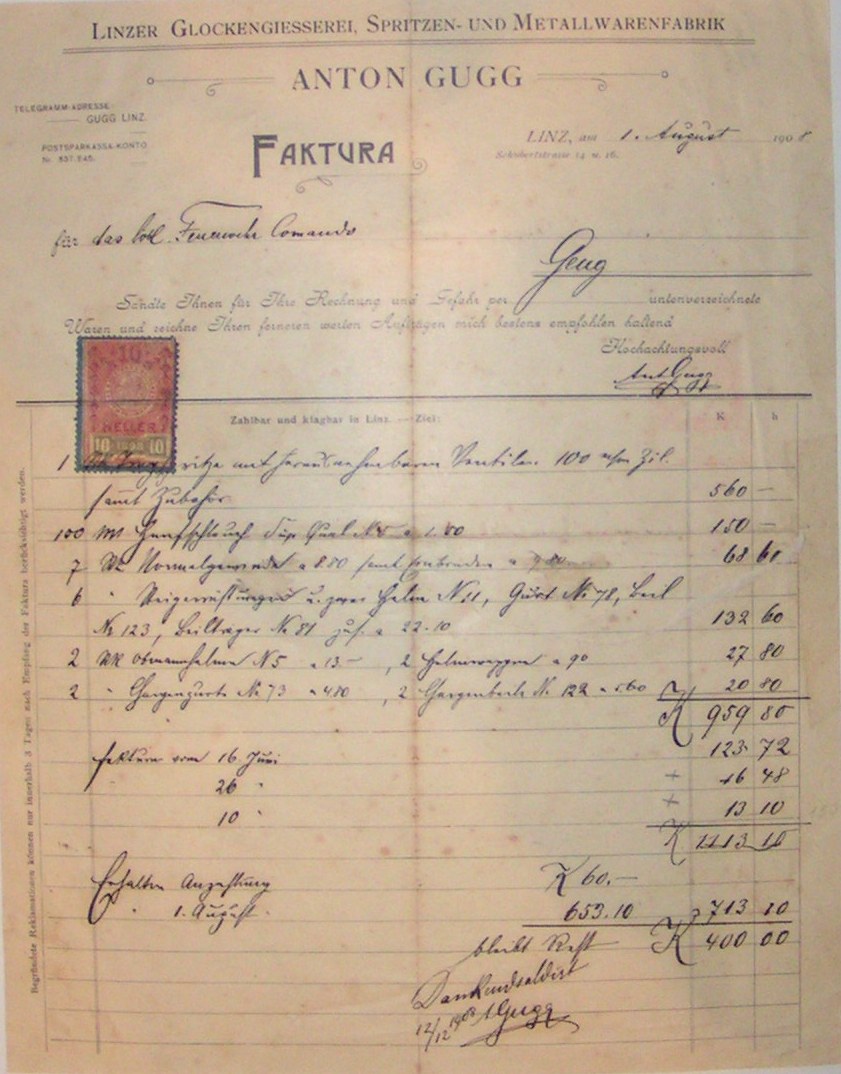 LINZER GLOCKENGIESSEREI, SPRITZEN- UND METALLWARENFABRIK
ANTON GUGG
TELEGRAMM-ADRESSE:
GUGG LINZ.
POSTSPARKASSA-KONTO
Nr. 837.845.
FAKTURA
LINZ, am 1. August 1908
Schubertstrasse 14 u. 16.
für das löbl. Feuerwehr Comando
Geng
Sandte Ihnen für Ihre Rechnung und Gefahr per untenverzeichnete
Waren und zeichne Ihren ferneren werten Aufträgen mich bestens empfohlen haltend
Hochachtungsvoll
Ant Gugg
10
HELLER
10 1898 10
Zahlbar und klagbar in Linz. — Ziel:
K h
1 mit herausnehmbaren Ventilen. 100 Zil.
sammt Zubehör 560 —
100 Hanfschlauch N 5 a 1.50 150 —
7 Normalgewinde a 8.80 samt Einbinden a 9.80 68 60
6 " Steigerausrüstungen u. zwar Helm N 11, Gurt No 78, Beil
No 123, Beilträger No 81 zus. a 22.10 132 60
2 Obmannhelme N 5 a 13.—, 2 a 90 27 80
2 " Chargengurte No 73 a 4.80, 2 Chargenbeile No 122 a 5.60 20 80
K 959 80
Faktura vom 16. Juni 123 72
26 " + 16 48
10 " + 13 10
K 1113 10
Erhalten Anzahlung K 60.—
" 1. August 653.10 713 10
bleibt Rest K 400 00
Dankend saldirt
12/12 1908 A Gugg
Begründete Reklamationen können nur innerhalb 3 Tagen nach Empfang der Faktura berücksichtigt werden.